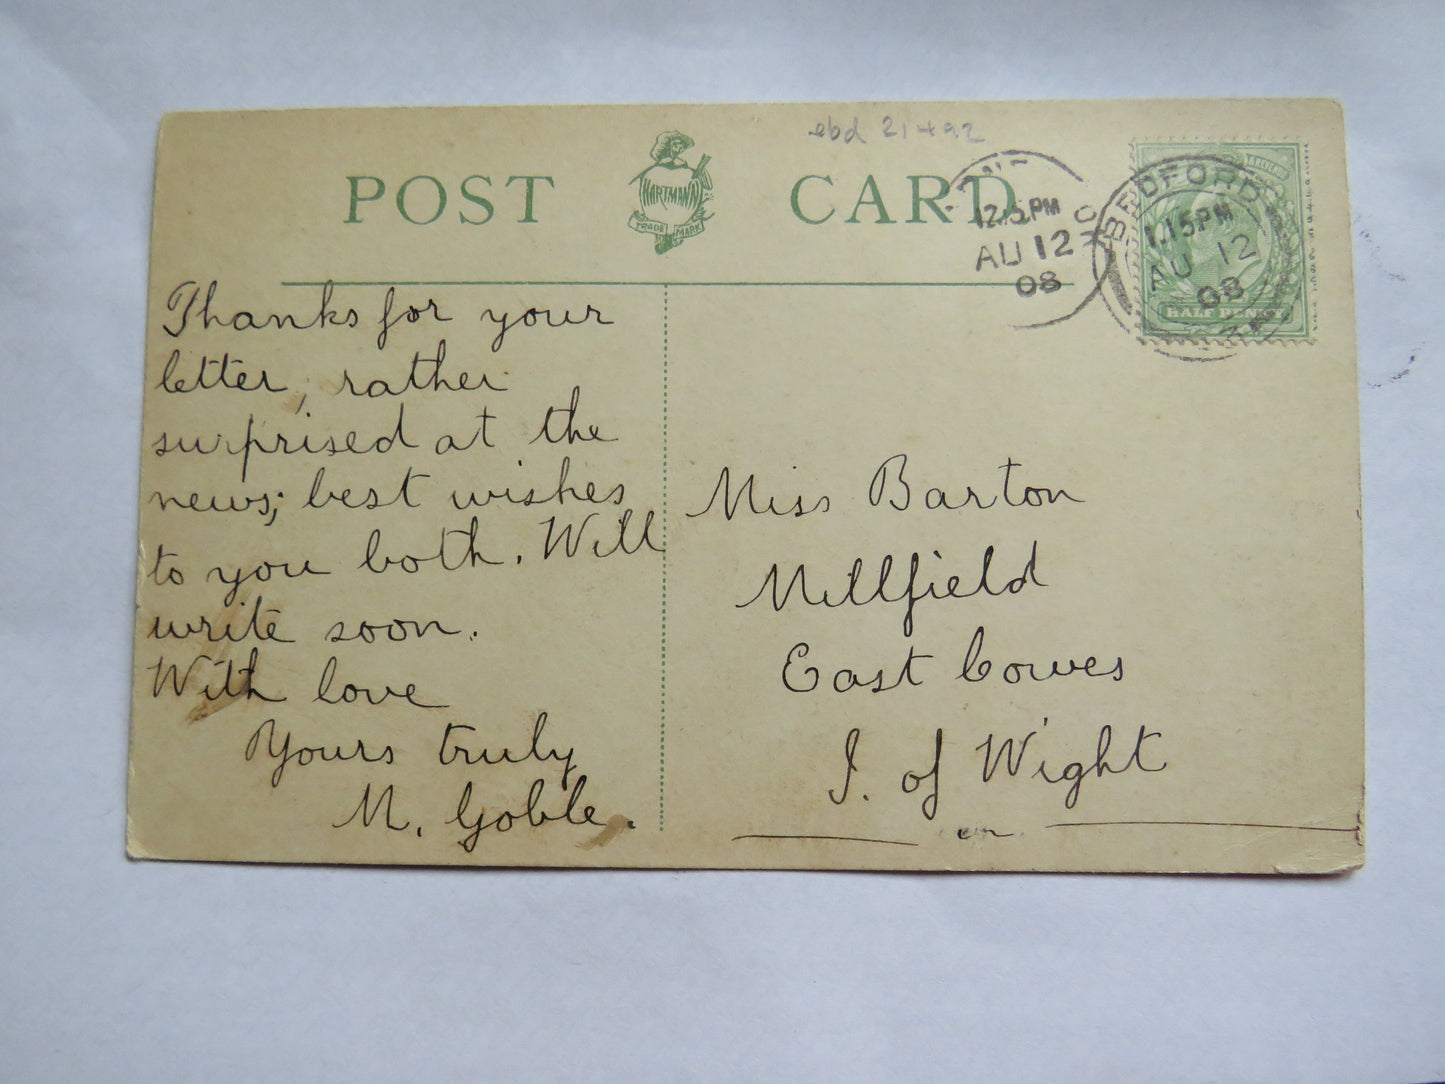 ebd 21+92
POST CARD
HARTMANN
TRADE MARK
12.15 PM
AU 12
08
BEDFORD
1.15 PM
AU 12
08
HALF PENNY
Thanks for your
letter, rather
surprised at the
news; best wishes
to you both. Will
write soon.
With love
Yours truly
M. Goble.
Miss Barton
Millfield
East Cowes
I. of Wight